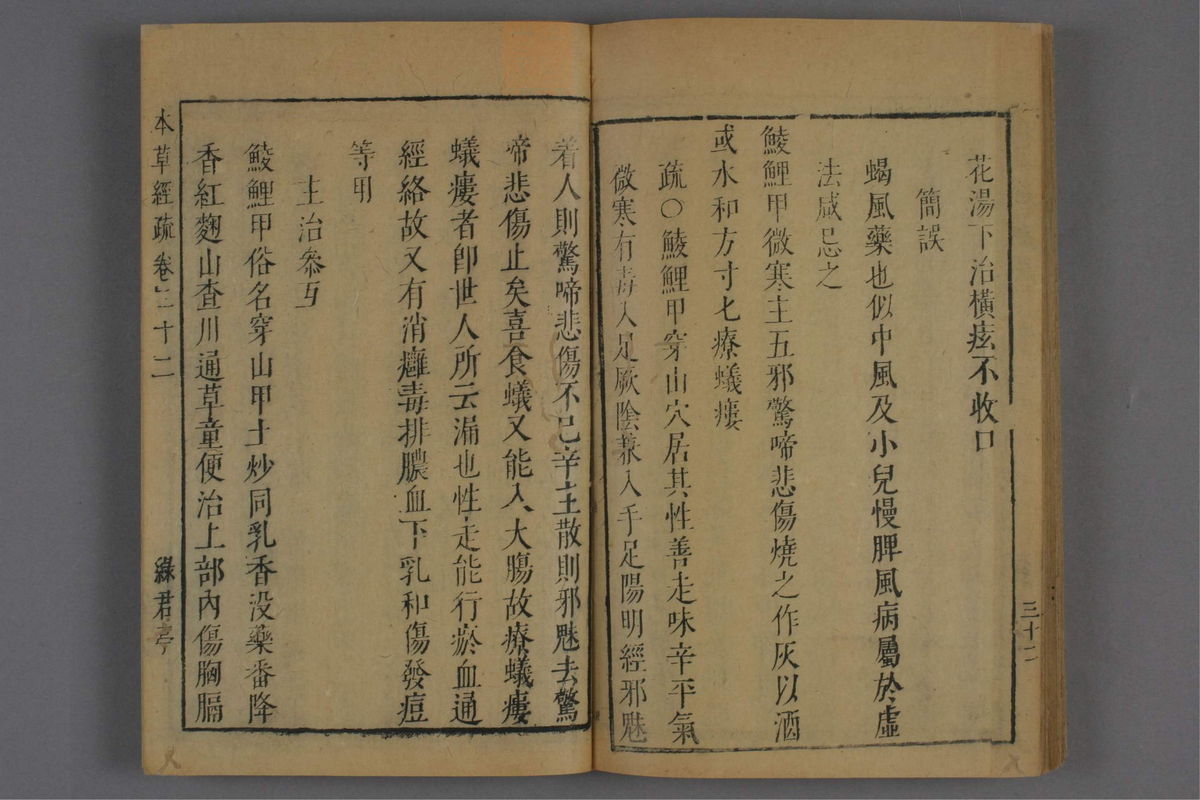 花湯下治橫痃不收口
簡誤
蝎風藥也似中風及小兒慢脾風病屬於虛
法咸忌之
鯪鯉甲微寒主五邪驚啼悲傷燒之作灰以酒
或水和方寸匕療蟻瘻
疏○鯪鯉甲穿山穴居其性善走味辛平氣
微寒有毒入足厥陰兼入手足陽明經邪魅
三十二
着人則驚啼悲傷不已辛主散則邪魅去驚
啼悲傷止矣喜食蟻又能入大腸故療蟻瘻
蟻瘻者卽世人所云漏也性走能行瘀血通
經絡故又有消癰毒排膿血下乳和傷發痘
等用
主治叅互
鯪鯉甲俗名穿山甲土炒同乳香没藥番降
香紅麴山查川通草童便治上部內傷胸膈
本草經疏 卷二十二
綠君亭